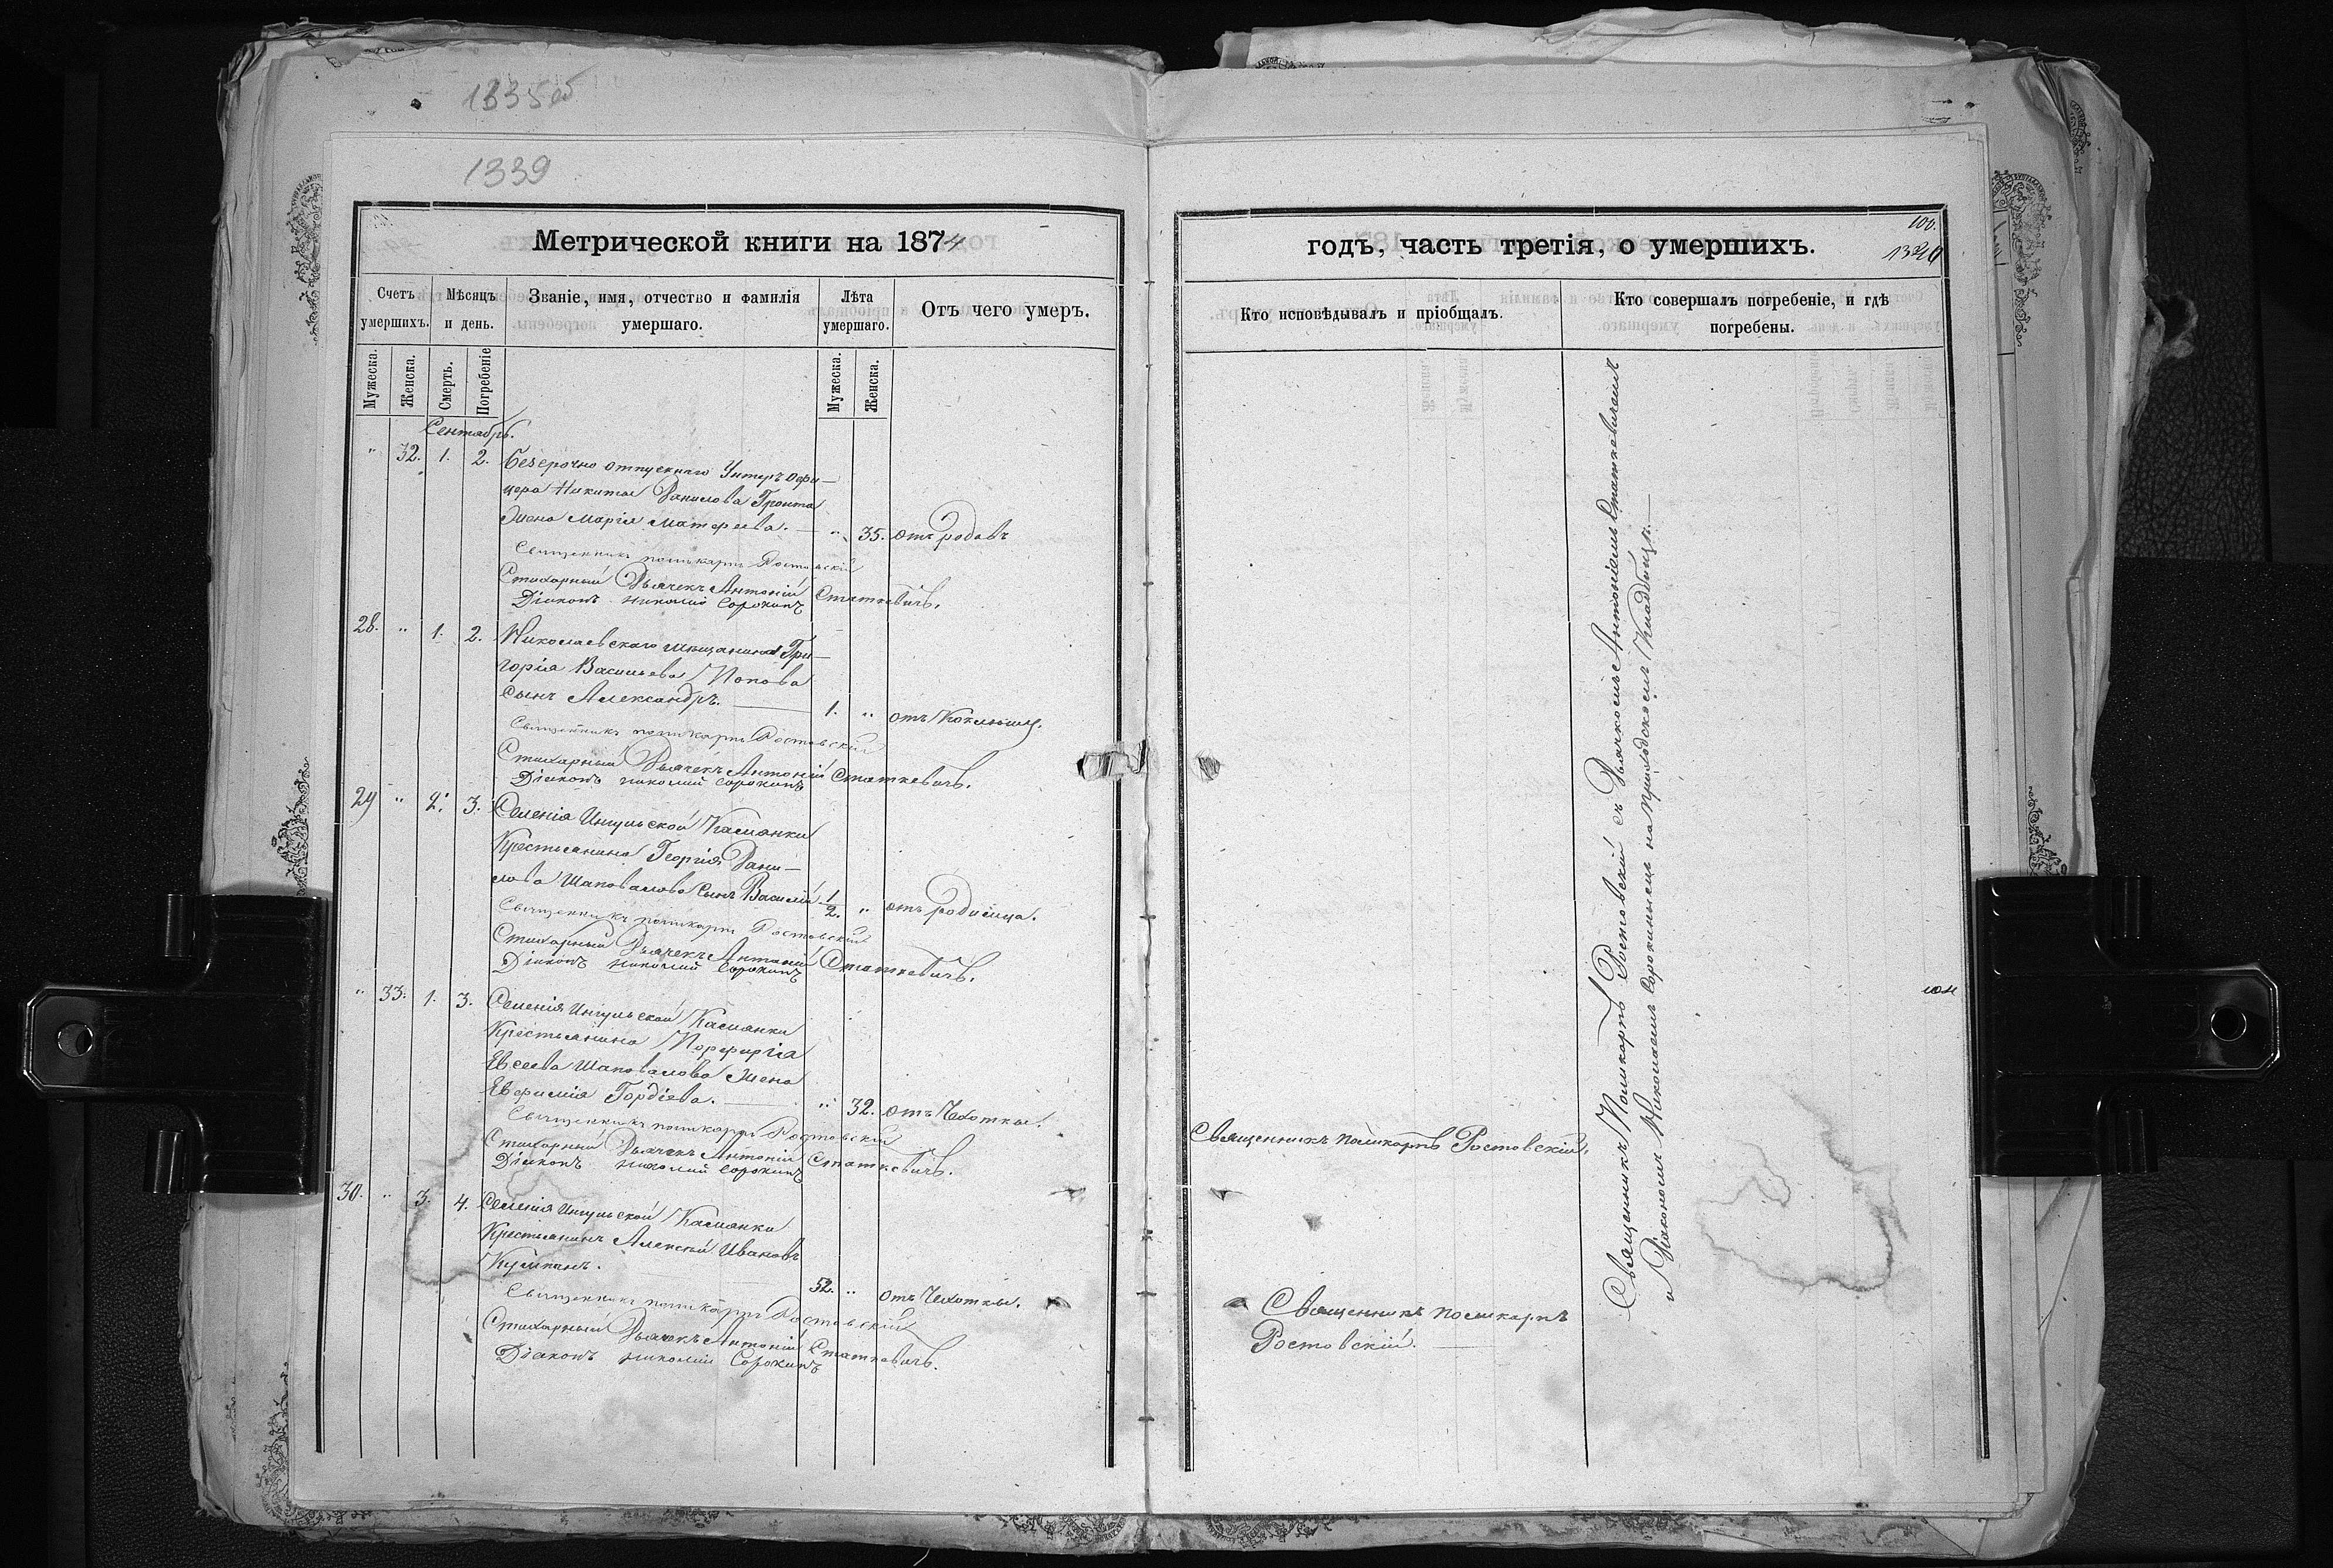 1335об
1339
Метрической книги на 1874
Счетъ умершихъ.
Мѣсяцъ и день.
Званіе, имя, отчество и фамилія умершаго.
Лѣта умершаго.
Отъ чего умеръ.
Мужеска.
Женска.
Смерть.
Погребеніе
Мужеска.
Женска.
Сентябрь.
" 32. 1. 2. Безсрочно отпускнаго Унтеръ Офи—
цера Никиты Данилова Гронта
Жена Марія Матфеева. — " 35. отъ родовъ
Священникъ Поликарпъ Ростовскій
Стихарный Дьячекъ Антоній Статкевичъ.
Діаконъ Николай Сорокинъ
28. " 1. 2. Николаевскаго мѣщанина Гри—
горія Васильева Попова
сынъ Александръ. — 1. " отъ Коклюша.
Священникъ Поликарпъ Ростовскій
Стихарный Дьячекъ Антоній Статкевичъ.
Діаконъ Николай Сорокинъ
29 " 2. 3. Селенія Ингульской Каменки
Крестьянина Георгія Дани—
лова Шаповалова сынъ Василій. 1/2. " отъ родимца.
Священникъ Поликарпъ Ростовскій
Стихарный Дьячекъ Антоній Статкевичъ.
Діаконъ Николай Сорокинъ
" 33. 1. 3. Селенія Ингульской Каменки
Крестьянина Порфирія
Евсеева Шаповалова Жена
Евфимія Гордіева. — " 32. отъ Чахотки.
Священникъ Поликарпъ Ростовскій
Стихарный Дьячекъ Антоній Статкевичъ.
Діаконъ Николай Сорокинъ
30. " 3. 4. Селенія Ингульской Каменки
Крестьянинъ Алексѣй Ивановъ
52. " отъ Чахотки.
Священникъ Поликарпъ Ростовскій
Стихарный Дьячекъ Антоній Статкевичъ.
Діаконъ Николай Сорокинъ
годъ, часть третія, о умершихъ.
100.
1340
Кто исповѣдывалъ и пріобщалъ.
Кто совершалъ погребеніе, и гдѣ погребены.
Священникъ Поликарпъ Ростовскій.
Священникъ Поликарпъ
Ростовскій. —
Священникъ Поликарпъ Ростовскій съ Дьячкомъ Антоніемъ Статкевичемъ
и Діакономъ Николаемъ Сорокинымъ на приходскомъ Кладбищѣ. —